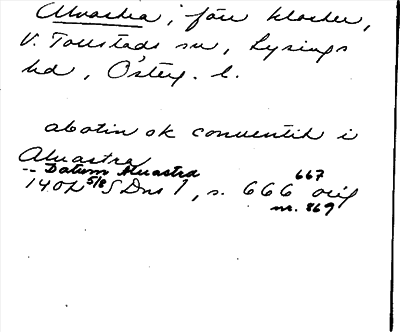 Alvastra, förr kloster,
V. Tollstads sn, Lysings
hd, Österg. l.
abotin ok conventih i
Aluastra
-- Datum Alvastra 667
1402 5/8 SDns 1, s. 666 orig
nr. 869